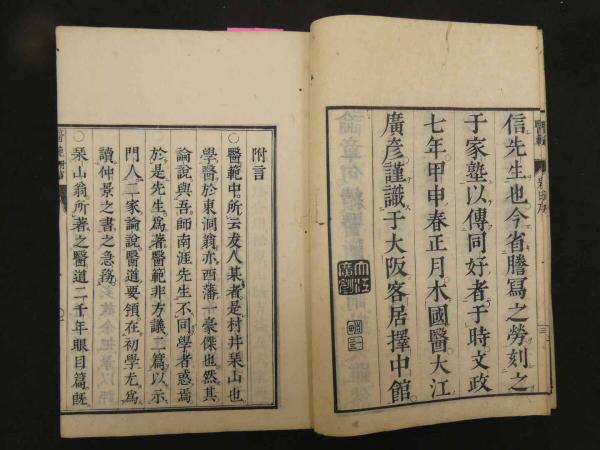 信先生也今省謄寫之勞刻之
于家塾以傳同好者于時文政
七年甲申春正月木國醫大江
廣彥謹識于大阪客居擇中館
附言
○醫範中所云友人某者是村井琹山也
學醫於東洞翁亦西藩一豪傑也然其
論說與吾師南涯先生不同學者惑焉
於是先生爲醫範非方議二篇以示
門人二家論說醫道要領在初學尤爲
讀仲景之書之急務
○琹山翁所著之醫道二千年眼目篇既